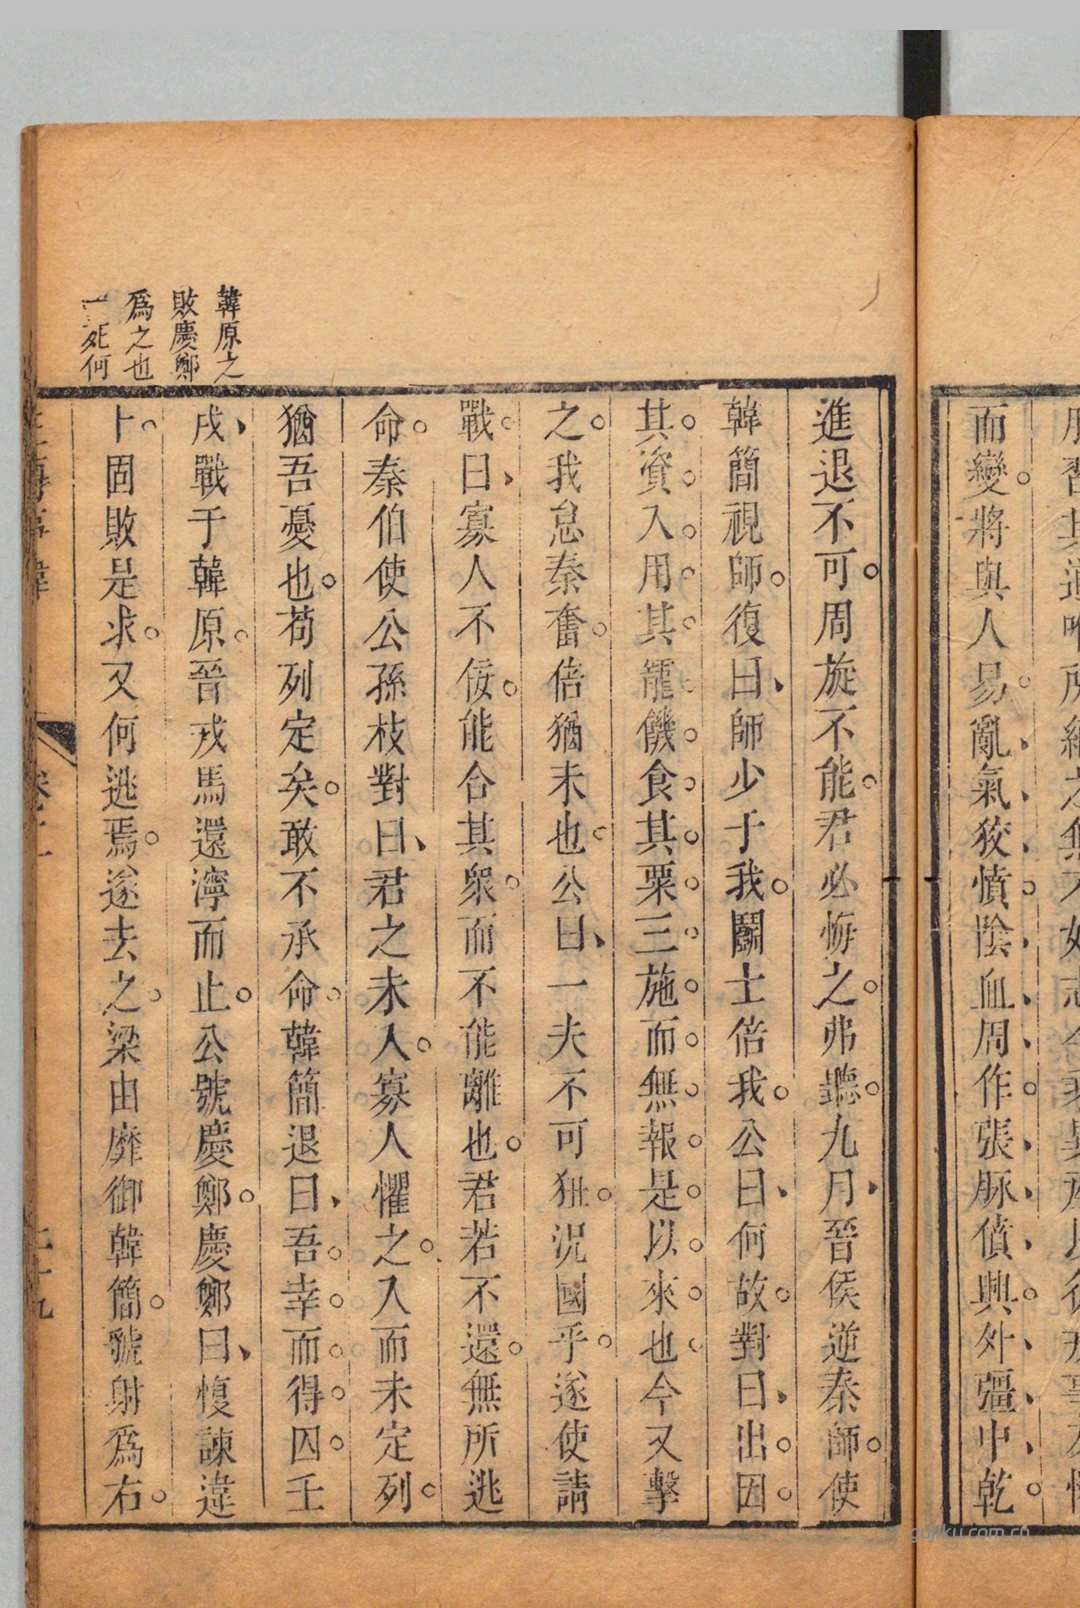 而變。將與人易。亂氣狡憤。陰血周作。張脉僨興。外彊中乾。
韓原之
敗慶鄭
爲之也
一死何
進退不可。周旋不能。君必悔之。弗聽。九月、晉侯逆秦師。使
韓簡視師。復曰、師少于我。鬭士倍我。公曰、何故。對曰、出。因。
其。資。入。用。其。寵。饑。食。其。粟。三。施。而。無。報。是。以。來。也。今又擊
之。我怠秦奮。倍猶未也。公曰、一夫不可狃。況國乎。遂使請
戰。曰、寡人不佞。能合其衆。而不能離也。君若不還。無所逃
命。秦伯使公孫枝對曰、君之未入。寡人懼之。入而未定列。
猶吾憂也。苟列定矣。敢不承命。韓簡退曰、吾。幸。而。得。囚。壬
戌、戰于韓原。晉戎馬還濘而止。公號慶鄭。慶鄭曰、愎諫違
卜。固敗是求。又何逃焉。遂去之。梁由靡御韓簡。虢射爲右。
gujiku.com.cn